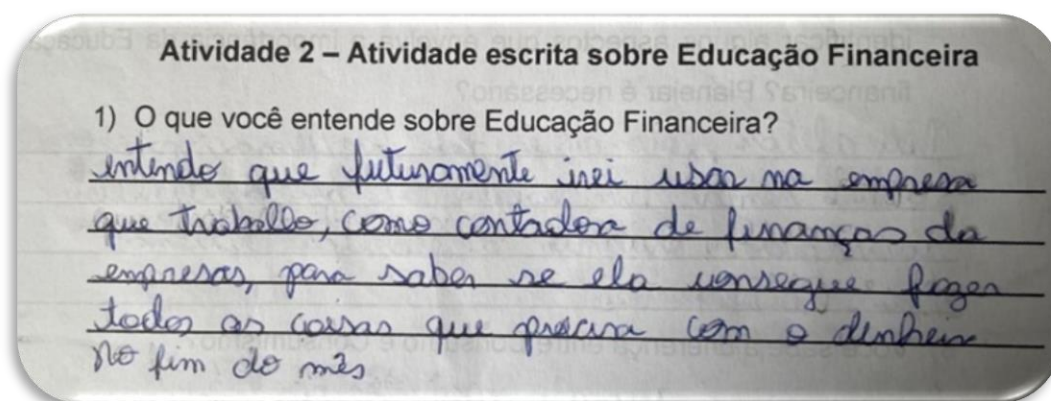 Atividade 2 – Atividade escrita sobre Educação Financeira
1) O que você entende sobre Educação Financeira?
entendo que futuramente irei usar na empresa
que trabalho, como contadora de finanças da
empresas, para saber se ela consegue fazer
todas as coisas que precisa com o dinheiro
no fim do mês